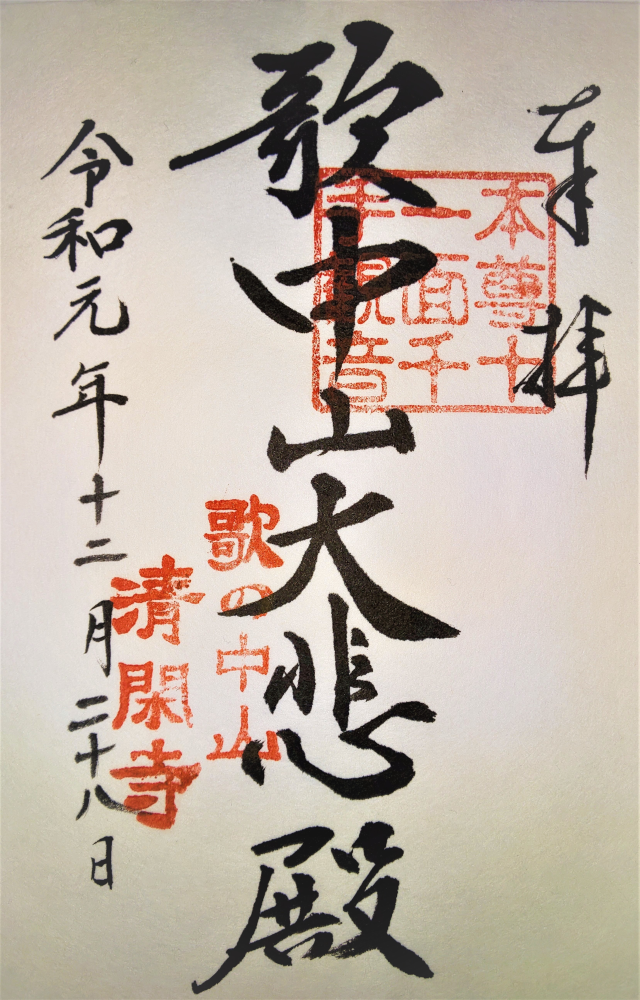 奉拝
本尊十
一面千
手観音
歌中山大悲殿
歌の中山
清閑寺
令和元年十二月二十八日